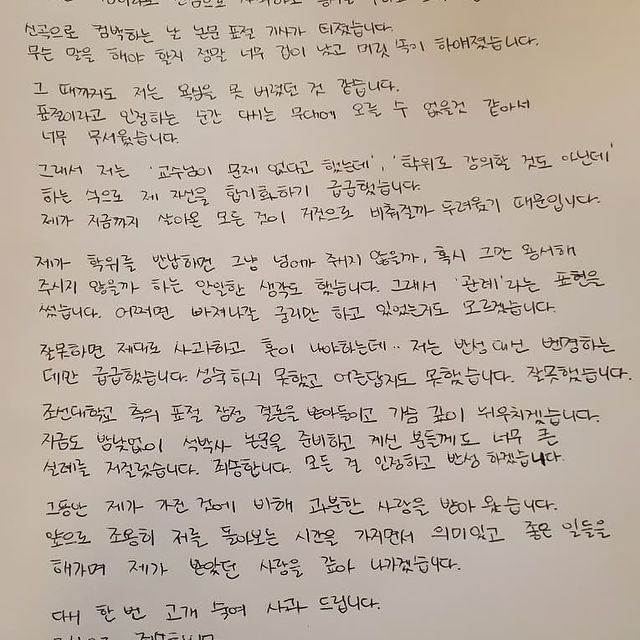 신곡으로 컴백하는 날 논문 표절 기사가 터졌습니다.
무슨 말을 해야 할지 정말 너무 겁이 났고 머릿 속이 하얘졌습니다.
그 때까지도 저는 욕심을 못 버렸던 것 같습니다.
표절이라고 인정하는 순간 다시는 무대에 오를 수 없을것 같아서
너무 무서웠습니다.
그래서 저는 '교수님이 문제 없다고 했는데', '학위로 강의할 것도 아닌데'
하는 식으로 제 자신을 합리화하기 급급했습니다.
제가 지금까지 살아온 모든 것이 거짓으로 비춰질까 두려웠기 때문입니다.
제가 학위를 반납하면 그냥 넘어가 주시지 않을까, 혹시 그만 용서해
주시지 않을까 하는 안일한 생각도 했습니다. 그래서 '관례'라는 표현을
썼습니다. 어쩌면 빠져나갈 궁리만 하고 있었는지도 모르겠습니다.
잘못하면 제대로 사과하고 혼이 나야하는데.. 저는 반성 대신 변명하는
데만 급급했습니다. 성숙하지 못했고 어른답지도 못했습니다. 잘못했습니다.
조선대학교 측의 표절 잠정 결론을 받아들이고 가슴 깊이 뉘우치겠습니다.
지금도 밤낮없이 석박사 논문을 준비하고 계신 분들께도 너무 큰
실례를 저질렀습니다. 죄송합니다. 모든 걸 인정하고 반성 하겠습니다.
그동안 제가 가진 것에 비해 과분한 사랑을 받아 왔습니다.
앞으로 조용히 저를 돌아보는 시간을 가지면서 의미있고 좋은 일들을
해가며 제가 받았던 사랑을 갚아 나가겠습니다.
다시 한 번 고개 숙여 사과 드립니다.